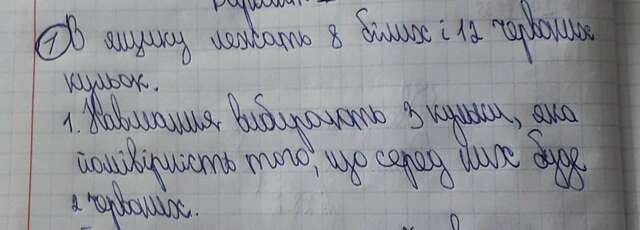 1 В ящику лежать 8 білих і 12 червоних
кульок.
1. Навмання вибирають 3 кульки, яка
ймовірність того, що серед них буде
2 червоних.